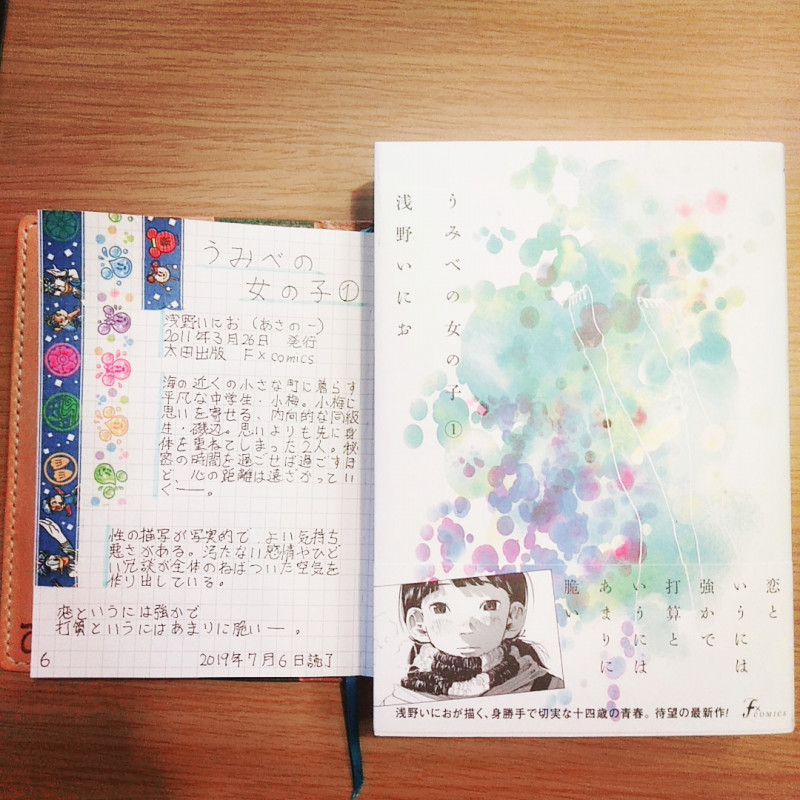 うみべの
女の子①
浅野いにお（あさの一）
2011年3月26日 発行
太田出版 F×comics
海の近くの小さな町に暮らす
平凡な中学生・小梅。小梅に
思いを寄せる、内向的な同級
生・磯辺。思いよりも先に身
体を重ねてしまった2人。秘
密の時間を過ごせば過ごすほ
ど、心の距離は遠ざかってい
く――。
性の描写が写実的で、よい気持ち
悪さがある。汚たない感情やひど
い冗談が全体のねばついた空気を
作り出している。
恋というには強かで
打算というにはあまりに脆い――。
6
2019年7月6日読了
うみべの女の子①
浅野いにお
恋と
いうには
強かで
打算と
いうには
あまりに
脆い
浅野いにおが描く、身勝手で切実な十四歳の青春。待望の最新作!
F×COMICS